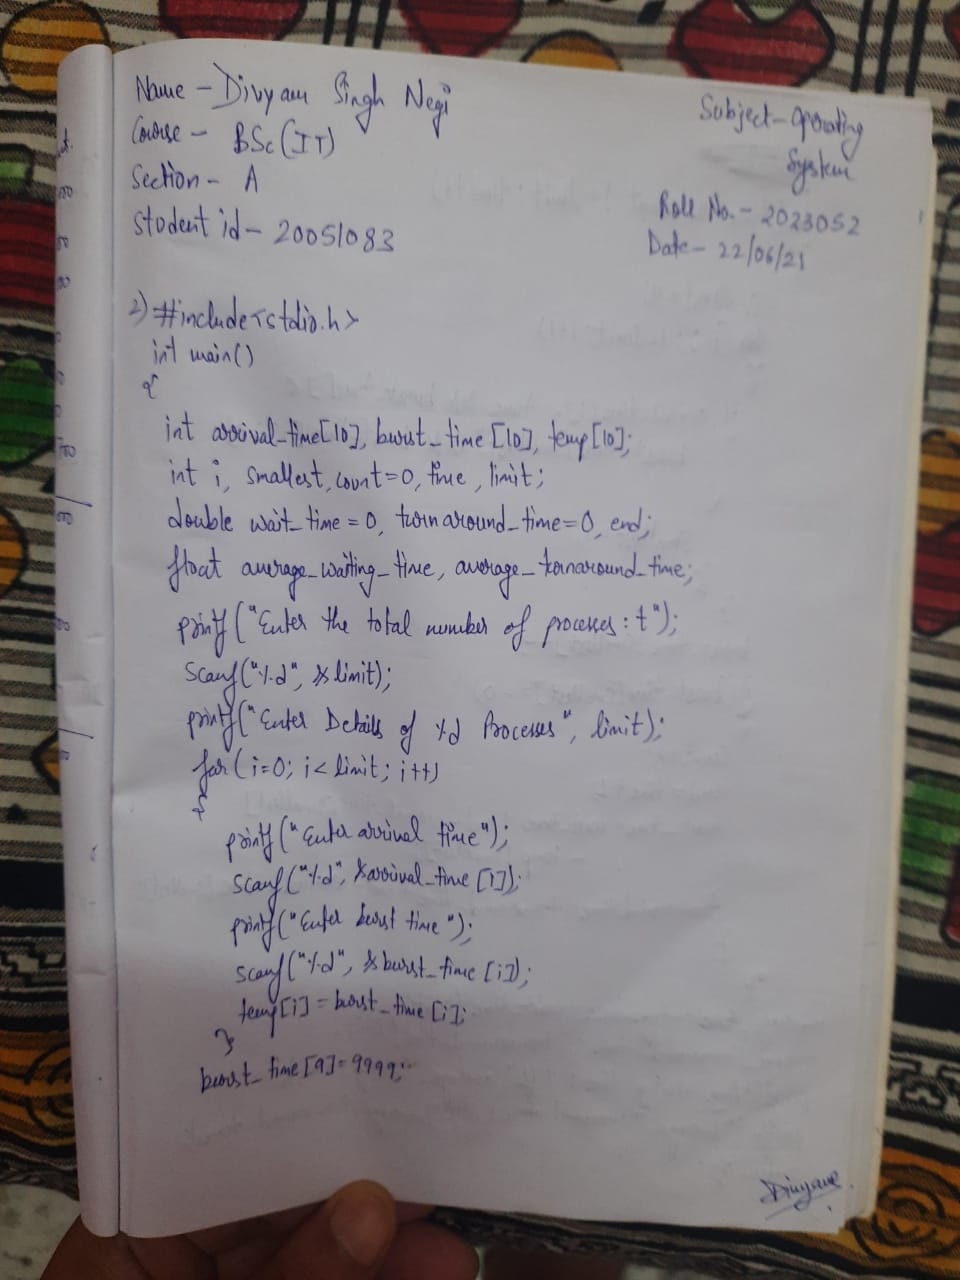 Name - Divyam Singh Negi
Course - BSc (IT)
Section - A
Student id - 20051083
Subject - Operating
System
Roll No. - 2023052
Date - 22/06/21
2) #include<stdio.h>
int main()
{
int arrival_time[10], burst_time [10], temp [10];
int i, smallest, count=0, time, limit;
double wait_time = 0, turnaround_time=0, end;
float average_waiting_time, average_turnaround_time;
printf ("Enter the total number of processes : t");
scanf("%d", &limit);
printf("Enter Details of %d Processes", limit);
for (i=0; i<limit; i++)
{
printf ("Enter arrival time");
scanf ("%d", &arrival_time [i]);
printf ("Enter burst time");
scanf ("%d", &burst_time [i]);
temp[i] = burst_time [i];
}
burst_time [9]=9999;